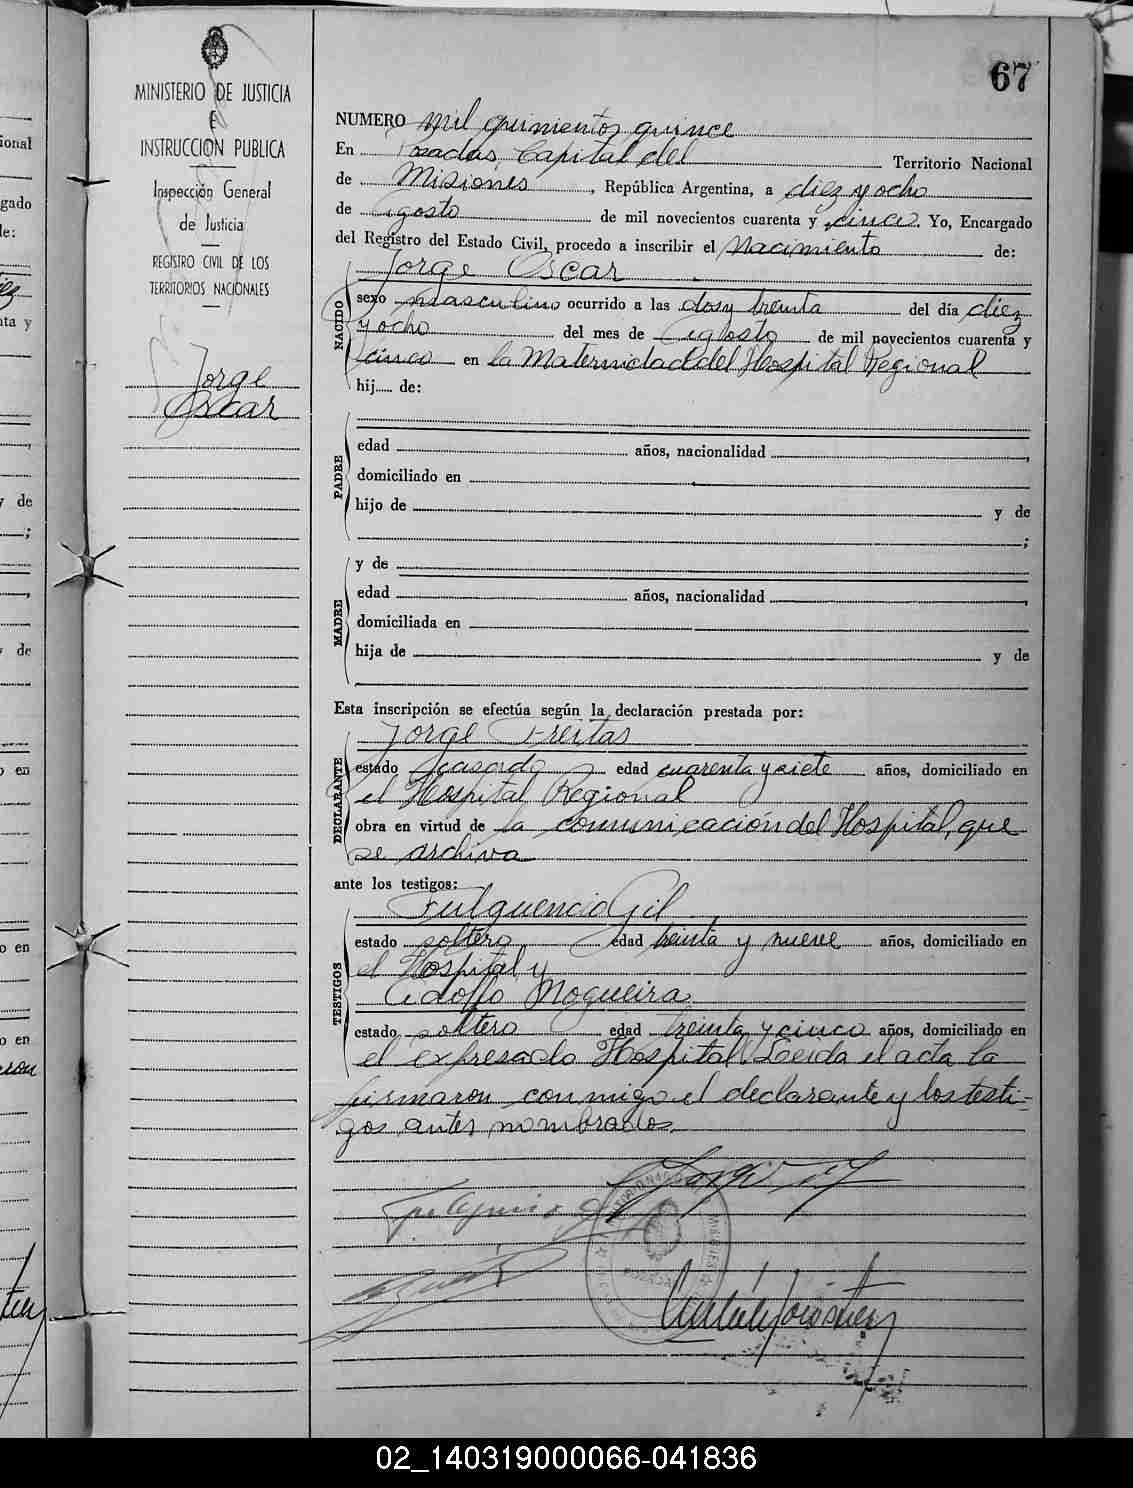 67
MINISTERIO DE JUSTICIA
E
INSTRUCCION PUBLICA
Inspección General
de Justicia
REGISTRO CIVIL DE LOS
TERRITORIOS NACIONALES
Jorge
Oscar
NUMERO mil quinientos quince
En Posadas, Capital del Territorio Nacional
de Misiones, República Argentina, a diez y ocho
de Agosto de mil novecientos cuarenta y cinco. Yo, Encargado
del Registro del Estado Civil, procedo a inscribir el Nacimiento de:
Jorge Oscar
NACIDO
sexo masculino ocurrido a las dos y treinta del día diez
y ocho del mes de Agosto de mil novecientos cuarenta y
cinco en la Maternidad del Hospital Regional
hij..... de:
PADRE
edad años, nacionalidad ,
domiciliado en
hijo de y de
;
y de
MADRE
edad años, nacionalidad ,
domiciliada en
hija de y de
Esta inscripción se efectúa según la declaración prestada por:
Jorge Freitas
DECLARANTE
estado casado edad cuarenta y siete años, domiciliado en
el Hospital Regional
obra en virtud de la comunicación del Hospital, que
se archiva
ante los testigos:
Fulguencio Gil
TESTIGOS
estado soltero edad treinta y nueve años, domiciliado en
el Hospital y
Adolfo Nogueira
estado soltero edad treinta y cinco años, domiciliado en
el expresado Hospital. Leida el acta la
firmaron conmigo el declarante y los testi-
gos antes nombrados.
02_140319000066-041836